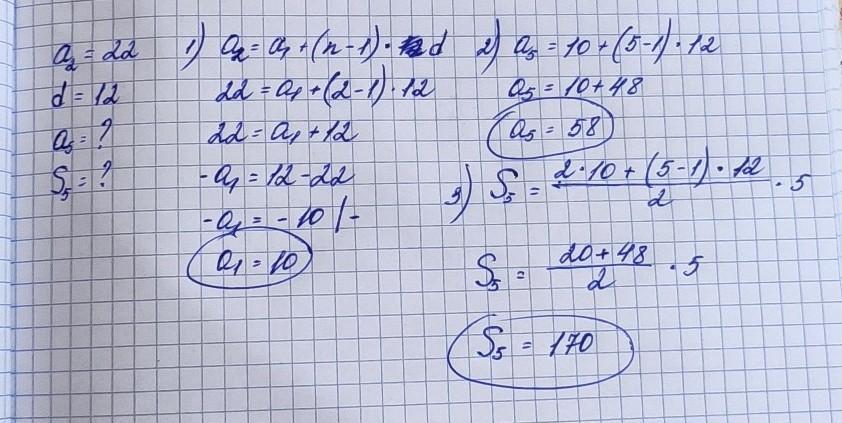 a₂ = 22
d = 12
a₅ = ?
S₅ = ?
1) a₂ = a₁ + (n-1) · d
22 = a₁ + (2-1) · 12
22 = a₁ + 12
-a₁ = 12 - 22
-a₁ = -10 |-
a₁ = 10
2) a₅ = 10 + (5-1) · 12
a₅ = 10 + 48
a₅ = 58
3) S₅ = (2·10 + (5-1) · 12)/2 · 5
S₅ = (20 + 48)/2 · 5
S₅ = 170